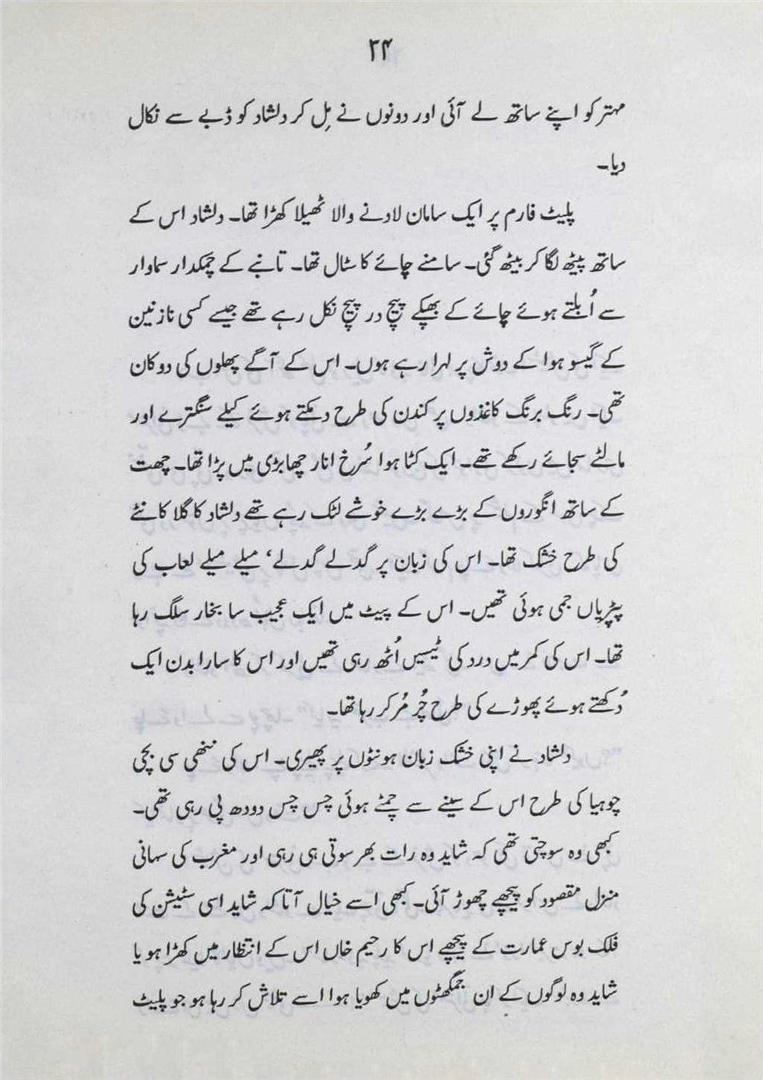 ۲۴
مہتر کو اپنے ساتھ لے آئی اور دونوں نے مِل کر دلشاد کو ڈبے سے نکال
دیا۔
پلیٹ فارم پر ایک سامان لادنے والا ٹھیلا کھڑا تھا۔ دلشاد اس کے
ساتھ پیٹھ لگا کر بیٹھ گئی۔ سامنے چائے کا سٹال تھا۔ تانبے کے چمکدار سماوار
سے اُبلتے ہوئے چائے کے بھپکے پیچ در پیچ نکل رہے تھے جیسے کسی نازنین
کے گیسو ہوا کے دوش پر لہرا رہے ہوں۔ اس کے آگے پھلوں کی دوکان
تھی۔ رنگ برنگ کاغذوں پر کندن کی طرح دمکتے ہوئے کیلے سنگترے اور
مالٹے سجائے رکھے تھے۔ ایک کٹا ہوا سُرخ انار چھابڑی میں پڑا تھا۔ چھت
کے ساتھ انگوروں کے بڑے بڑے خوشے لٹک رہے تھے دلشاد کا گلا کانٹے
کی طرح خشک تھا۔ اس کی زبان پر گدلے گدلے، میلے میلے لعاب کی
پپڑیاں جمی ہوئی تھیں۔ اس کے پیٹ میں ایک عجیب سا بخار سلگ رہا
تھا۔ اس کی کمر میں درد کی ٹیسیں اُٹھ رہی تھیں اور اس کا سارا بدن ایک
دُکھتے ہوئے پھوڑے کی طرح چُر مُر کر رہا تھا۔
دلشاد نے اپنی خشک زبان ہونٹوں پر پھیری۔ اس کی ننھی سی بچی
چوہیا کی طرح اس کے سینے سے چمٹے ہوئی چس چس دودھ پی رہی تھی۔
کبھی وہ سوچتی تھی کہ شاید وہ رات بھر سوتی ہی رہی اور مغرب کی سہانی
منزل مقصود کو پیچھے چھوڑ آئی۔ کبھی اسے خیال آتا کہ شاید اسی سٹیشن کی
فلک بوس عمارت کے پیچھے اس کا رحیم خاں اس کے انتظار میں کھڑا ہو یا
شاید وہ لوگوں کے ان جمگھٹوں میں کھویا ہوا اسے تلاش کر رہا ہو جو پلیٹ